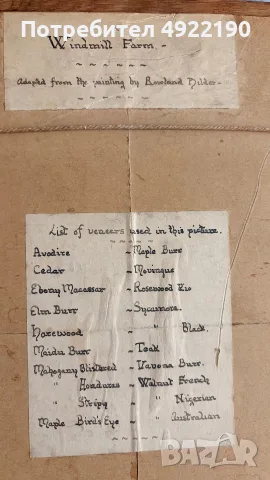 Потребител 4922190
Windmill Farm. -
Adapted from the painting by Rowland Hilder -
List of veneers used in this picture.
Avodire ~ Maple Burr
Cedar ~ Movingue
Ebony Macassar ~ Rosewood Rio
Elm Burr ~ Sycamore.
Harewood ~ " Black.
Maidu Burr ~ Teak
Mahogany Blistered ~ Vavona Burr.
" Honduras ~ Walnut French
" Stripy ~ " Nigerian
Maple Bird's Eye ~ " Australian
BAZAR